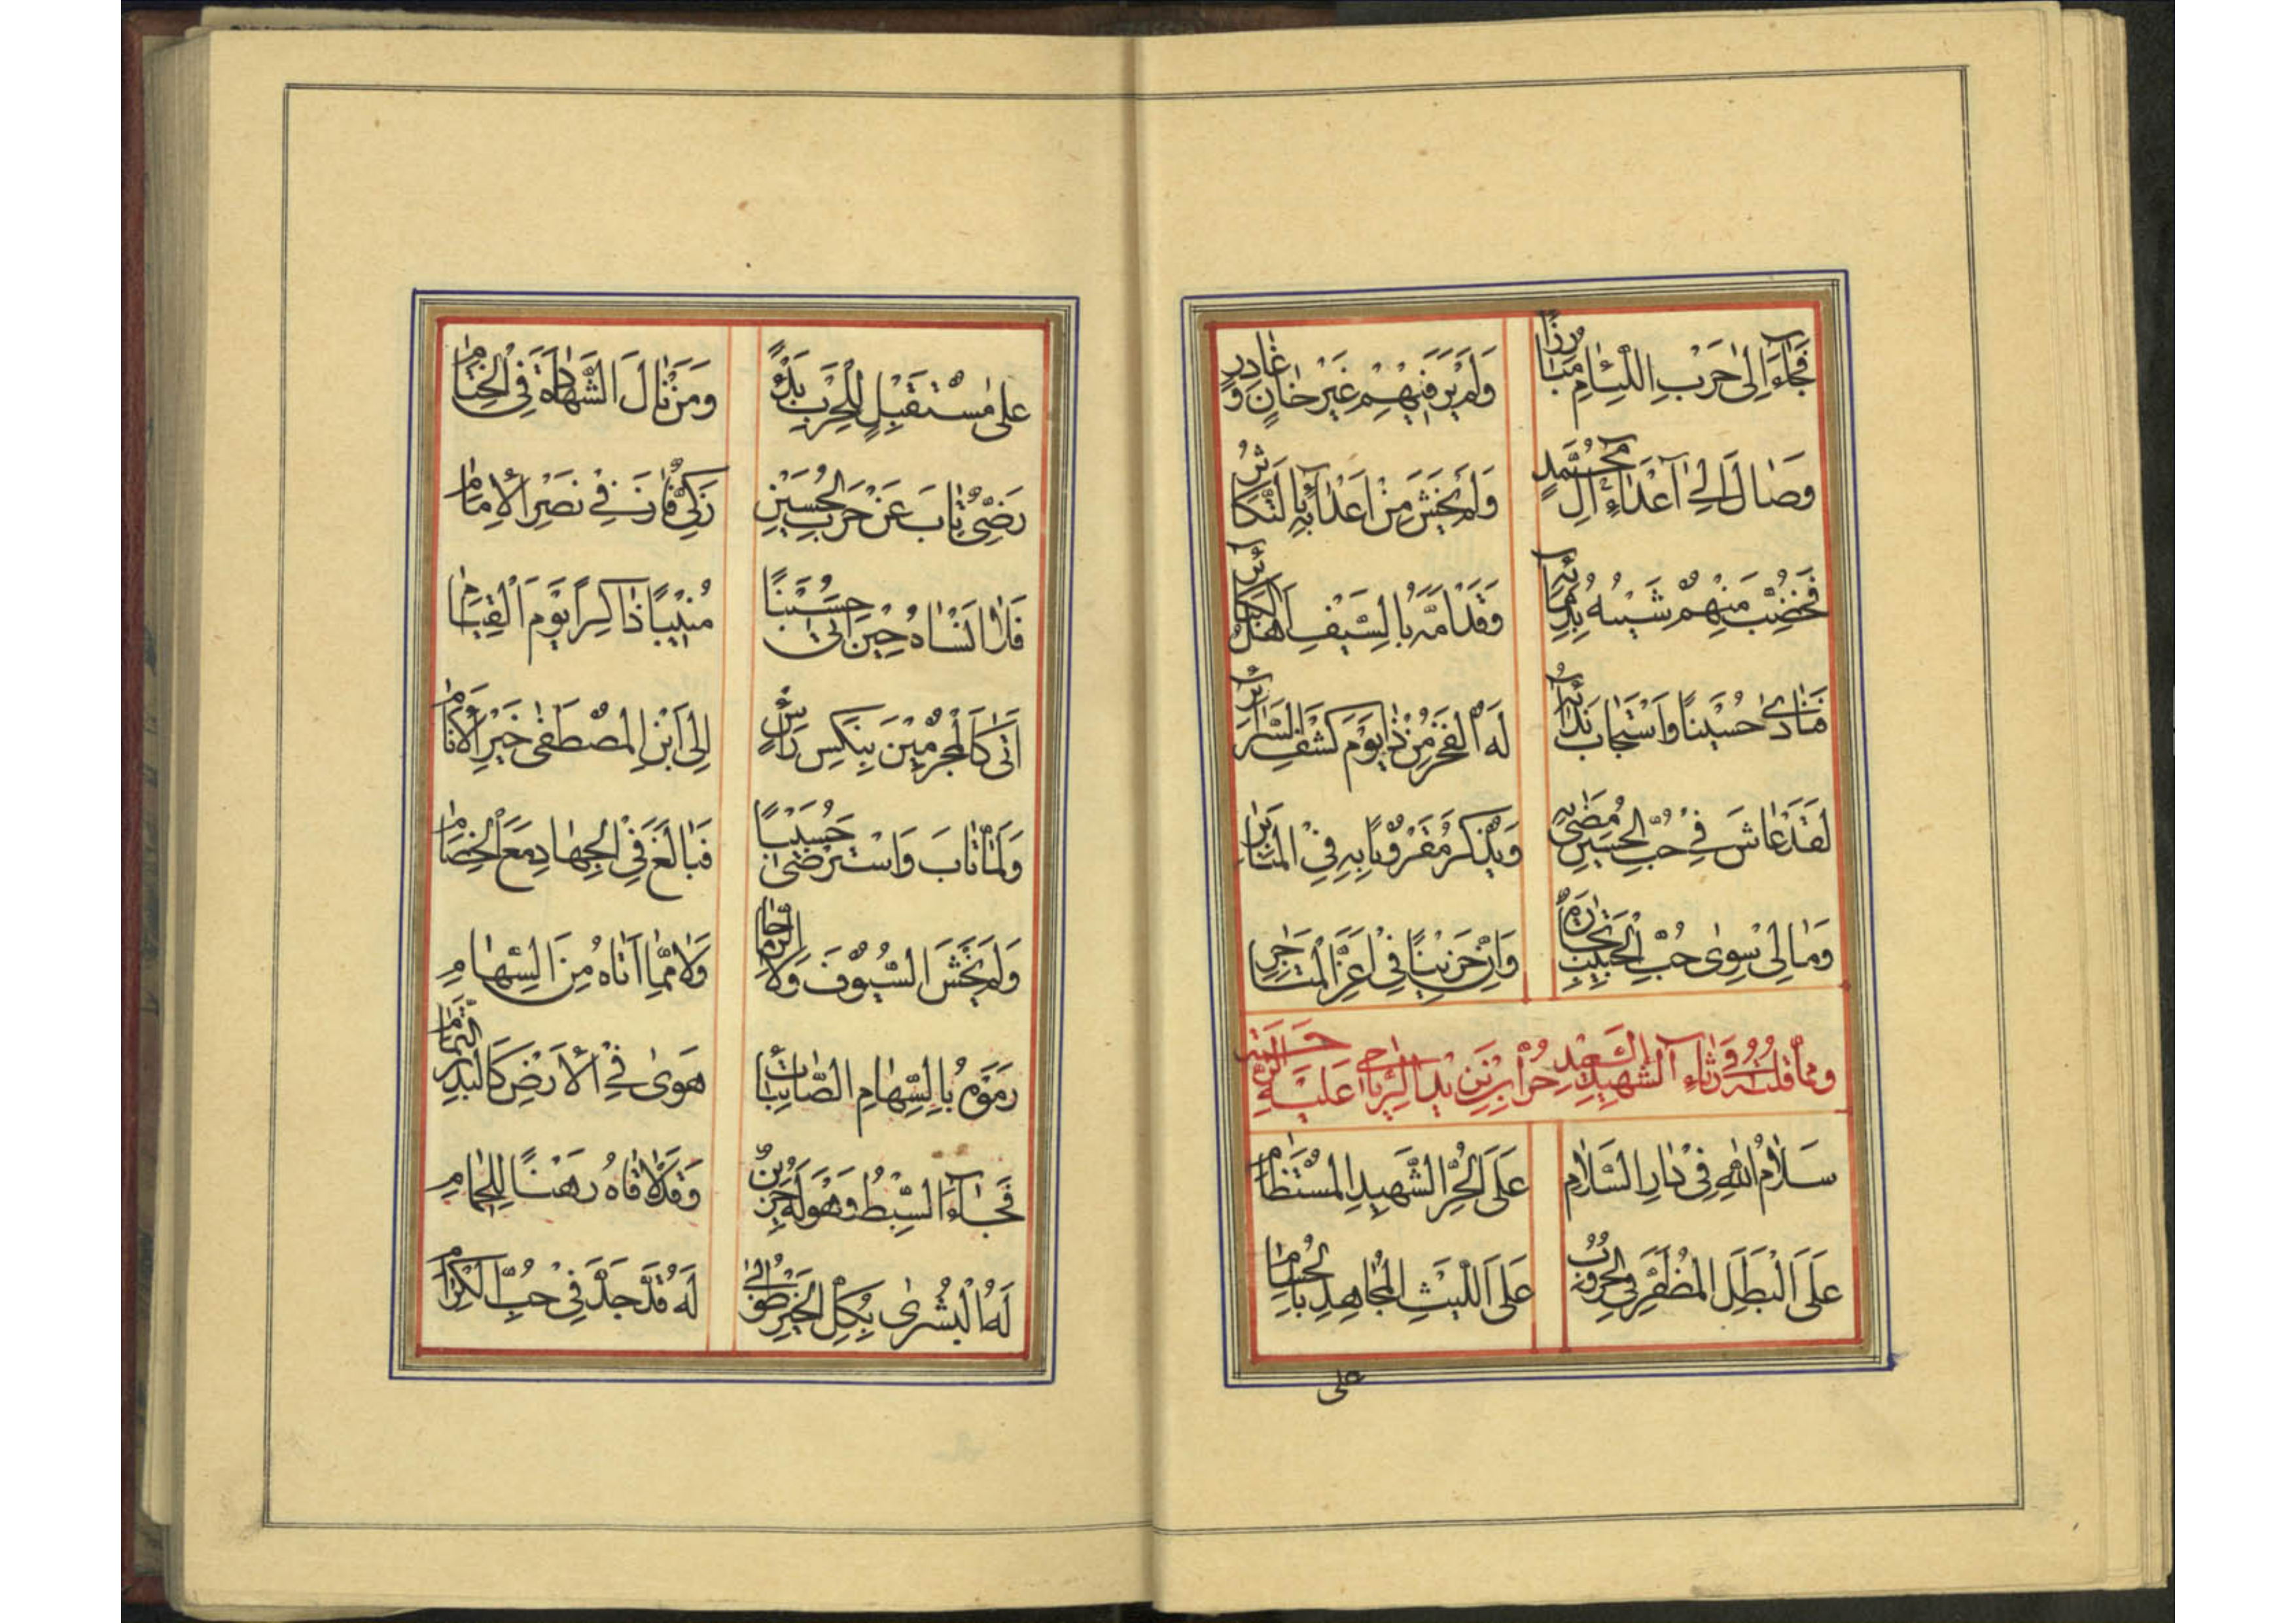 فَجَآءَ اِلىٰ حَرْبِ اللِّئٰامِ مُبٰارِزًا وَلَمْ يَرَ فيهِمْ غَيْرَ خٰانٍ وَغٰادِرِ
وَصٰالَ اِلىٰ اَعْدٰاءِ اٰلِ مُحَمَّدٍ وَلَمْ يَخْشَ مِنْ اَعْدٰائِهِ بِالتَّكٰاثُرِ
فَخُضِّبَ مِنْهُمْ شَيْبُهُ بِدِمٰائِهِ وَقَدْ اَمَّهُ بِالسَّيْفِ اَهْلُ الْكَبٰائِرِ
فَنٰادىٰ حُسَيْنًا وَاسْتَجٰابَ نِدٰائَهُ لَهُ الْفَخْرُ مِنْ ذٰا يَوْمَ كَشْفِ السَّرٰائِرِ
لَقَدْ عٰاشَ فِي حُبِّ الْحُسَيْنِ مُضٰى بِهِ وَيُذْكَرُ مَقْرُوْنًا بِهِ فِى الْمَنٰابِرِ
وَمٰا لِى سِوىٰ حُبِّ الْحَبِيْبِ تِجٰارَةٌ وَاِنْ حَزِيْنًا فِى اَعَزِّ الْمَتٰاجِرِ
ومما قلته فى رثاء الشهيد السعيد حر ابن يزيد الرياحى عليه الرحمة
سَلاٰمُ اللّٰهِ فِى دٰارِ السَّلاٰمِ عَلَى الْحُرِّ الشَّهِيدِ الْمُسْتَظٰامِ
عَلَى الْبَطَلِ الْمُظَفَّرِ فِى الْحُرُوْبِ عَلَى اللَّيْثِ الْمُجٰاهِدِ بِالْحُسٰامِ
على
عَلىٰ مُسْتَقْبِلٍ لِلْحَرْبِ بَدْءً وَمَنْ نٰالَ الشَّهٰادَةَ فِى الْخِتٰامِ
رَضِىٌّ تٰابَ عَنْ حَرْبِ الْحُسَيْنِ زَكِىٌّ فٰازَ فِي نَصْرِ الْاِمٰامِ
فَلاٰ اَنْسٰاهُ حِيْنَ اَتىٰ حُسَيْنًا مُنِيْبًا ذٰاكِرًا يَوْمَ الْقِيٰامِ
اَتىٰ كَالْمُجْرِمِيْنَ بِنَكْسِ رَأْسٍ اِلىَ ابْنِ الْمُصْطَفىٰ خَيْرِ الْاَنٰامِ
وَلَمّٰا تٰابَ وَاسْتَرْضىٰ حُسَيْنًا فَبٰالَغَ فِى الْجِهٰادِ مَعَ الْخِصٰامِ
وَلَمْ يَخْشَ السُّيُوْفَ وَلاَ الرِّمٰاحٰا وَلاٰ مِمّٰا اَتٰاهُ مِنَ السِّهٰامِ
رَمَوْهُ بِالسِّهٰامِ الصّٰائِبٰاتِ هَوىٰ فِي الْاَرْضِ كَالْبَدْرِ التَّمٰامِ
فَجٰآءَ السِّبْطُ وَهْوَ لَهُ حَزِيْنٌ وَقَدْ لاٰقٰاهُ رَهْنًا لِلْحِمٰامِ
لَهُ الْبُشْرىٰ بِكُلِّ الْخَيْرِ طُوْبىٰ لَهُ قَدْ جَدَّ فِى حُبِّ الْكِرٰامِ